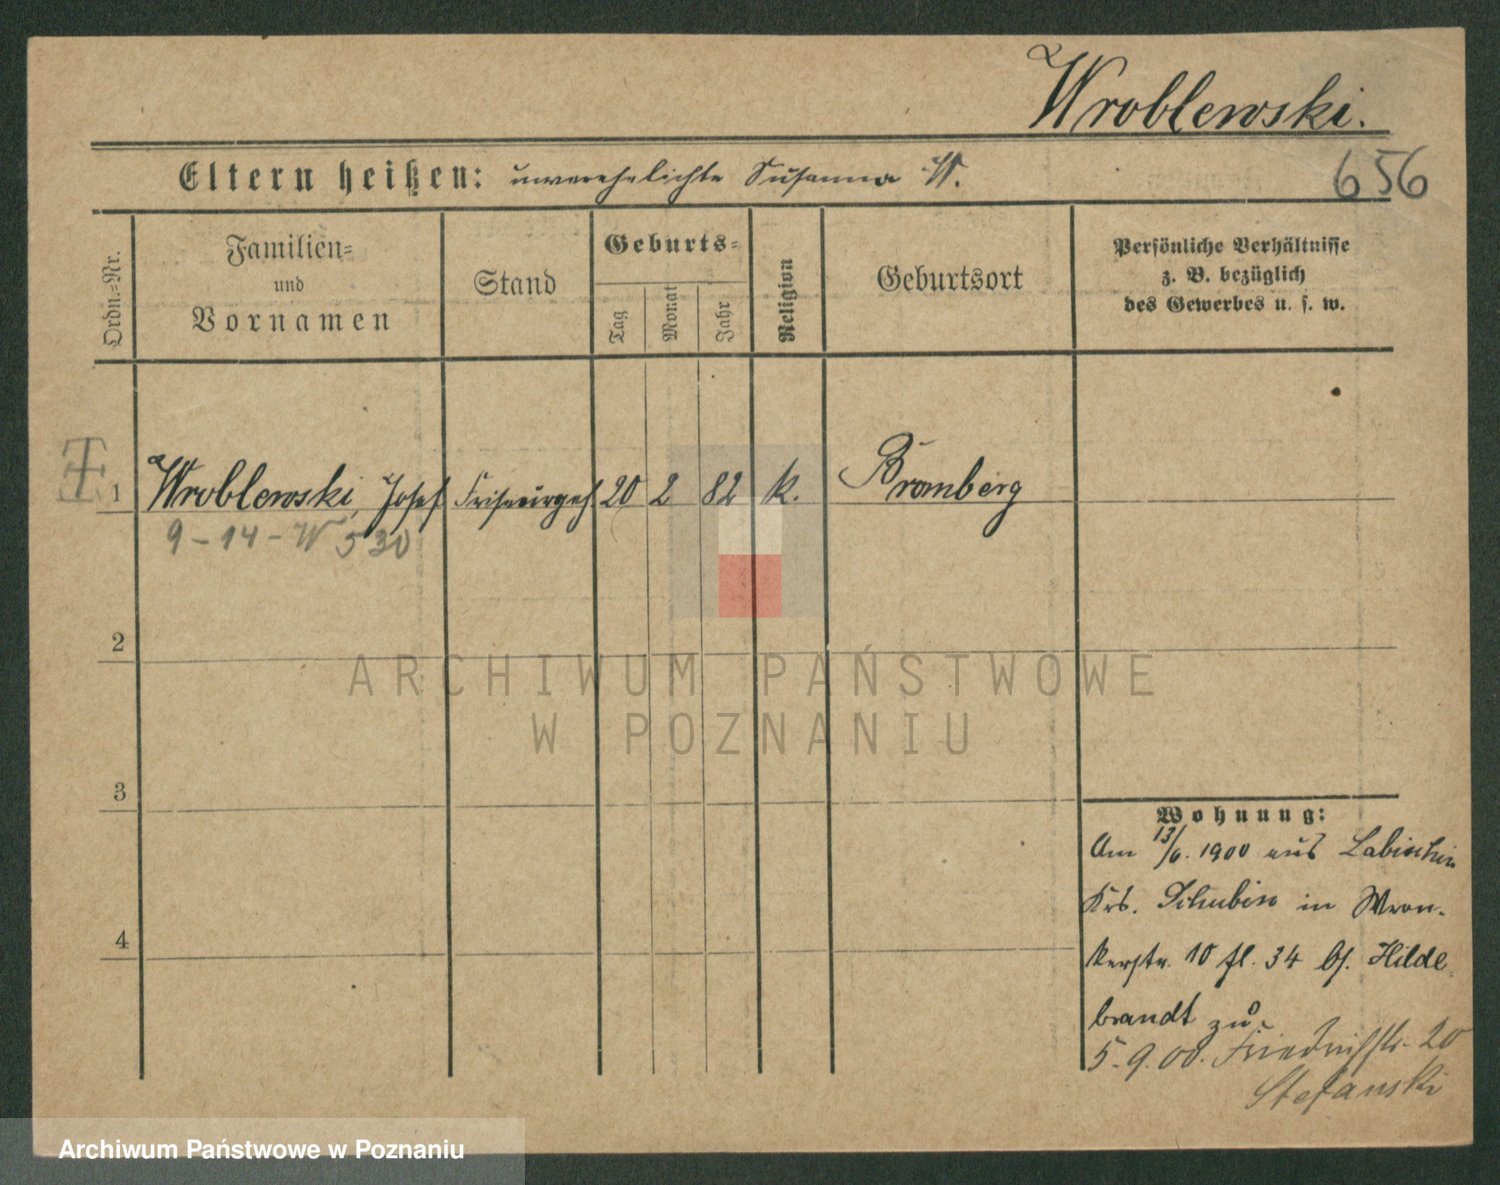 Wroblewski.
Eltern heißen: unverehelichte Susanna W.
656
Ordn.-Nr.
Familien-
und
Vornamen
Stand
Geburts-
Tag
Monat
Jahr
Religion
Geburtsort
Persönliche Verhältnisse
z. B. bezüglich
des Gewerbes u. s. w.
1 Wroblewski, Josef Friseurgeh. 20 2 82 k. Bromberg
9-14-W 530
2
ARCHIWUM PAŃSTWOWE
W POZNANIU
3
Wohnung:
Am 13/6. 1900 aus Labischin
Krs. Schubin in Wron-
kerstr. 10 fl. 34 bf. Hilde
brandt zu.
4
5.9.00. Friedrichstr. 20
Stefanski
Archiwum Państwowe w Poznaniu